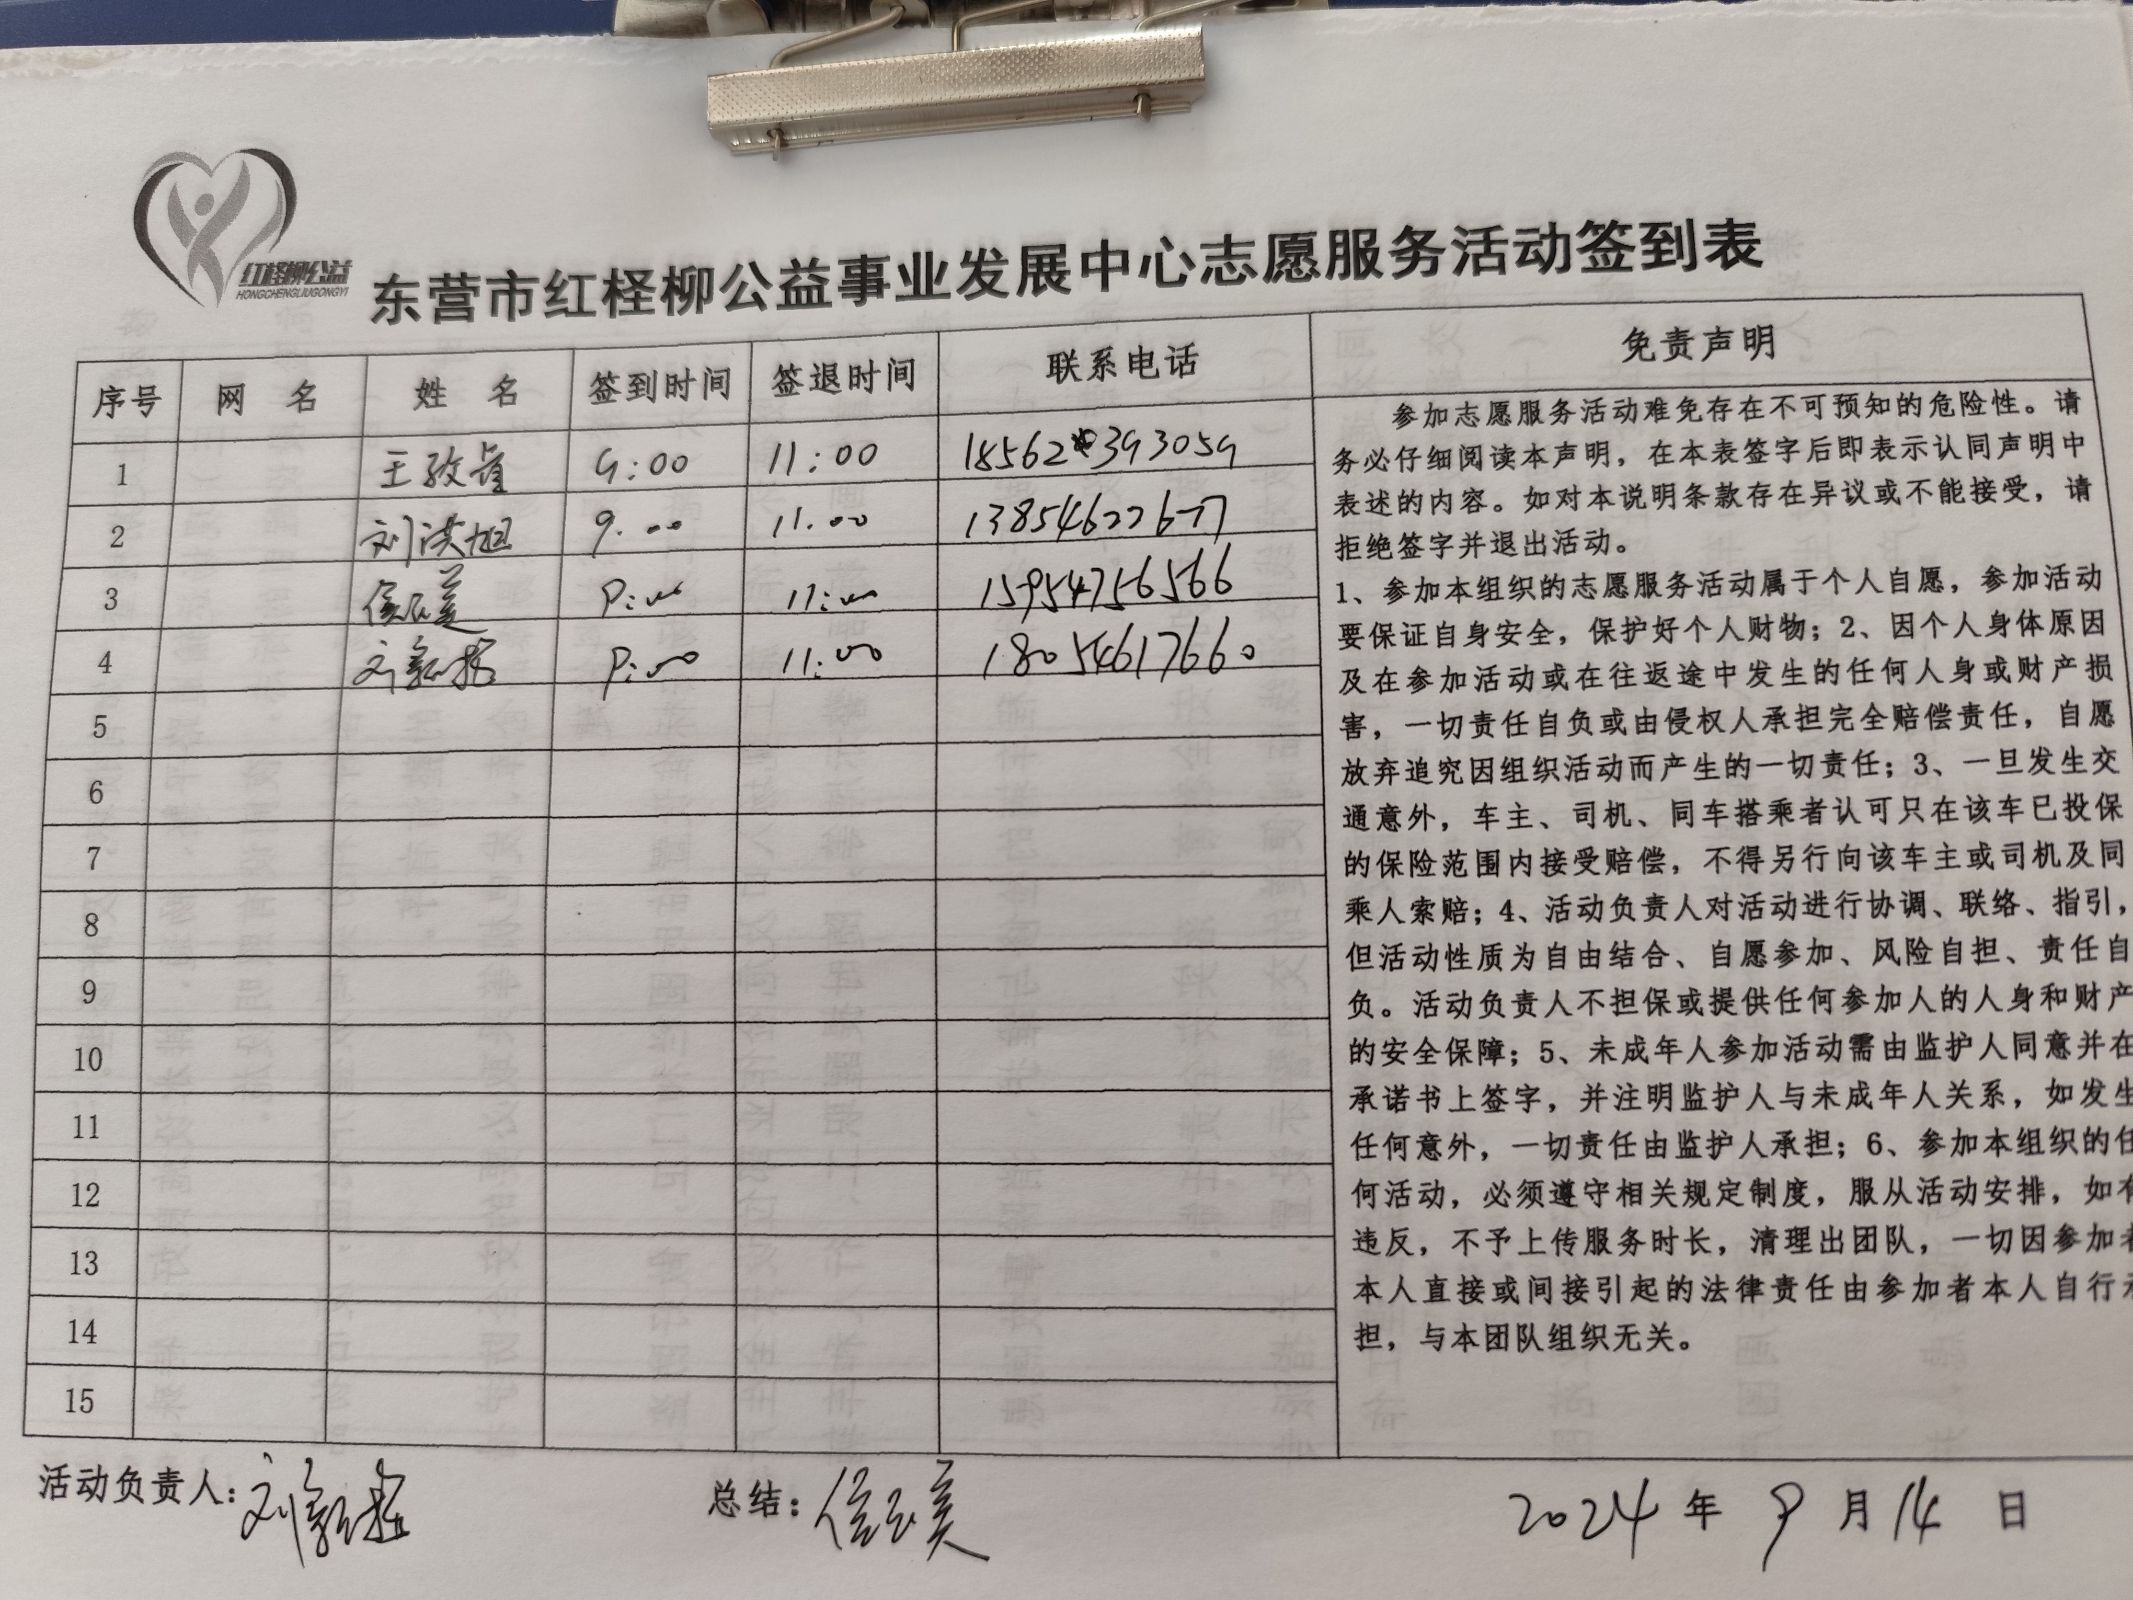 红柽柳公益
HONGCHENGLIUGONGYI
东营市红柽柳公益事业发展中心志愿服务活动签到表
序号 网 名 姓 名 签到时间 签退时间 联系电话 免责声明
1 9:00 11:00 18562393059
2 刘洪旭 9.00 11.00 13854622677
3 9:00 11:00 15954756566
4 9:00 11:00 18054617660
5
6
7
8
9
10
11
12
13
14
15
参加志愿服务活动难免存在不可预知的危险性。请
务必仔细阅读本声明，在本表签字后即表示认同声明中
表述的内容。如对本说明条款存在异议或不能接受，请
拒绝签字并退出活动。
1、参加本组织的志愿服务活动属于个人自愿，参加活动
要保证自身安全，保护好个人财物；2、因个人身体原因
及在参加活动或在往返途中发生的任何人身或财产损
害，一切责任自负或由侵权人承担完全赔偿责任，自愿
放弃追究因组织活动而产生的一切责任；3、一旦发生交
通意外，车主、司机、同车搭乘者认可只在该车已投保
的保险范围内接受赔偿，不得另行向该车主或司机及同
乘人索赔；4、活动负责人对活动进行协调、联络、指引，
但活动性质为自由结合、自愿参加、风险自担、责任自
负。活动负责人不担保或提供任何参加人的人身和财产
的安全保障；5、未成年人参加活动需由监护人同意并在
承诺书上签字，并注明监护人与未成年人关系，如发生
任何意外，一切责任由监护人承担；6、参加本组织的任
何活动，必须遵守相关规定制度，服从活动安排，如有
违反，不予上传服务时长，清理出团队，一切因参加者
本人直接或间接引起的法律责任由参加者本人自行承
担，与本团队组织无关。
活动负责人： 总结： 2024 年 9 月 14 日